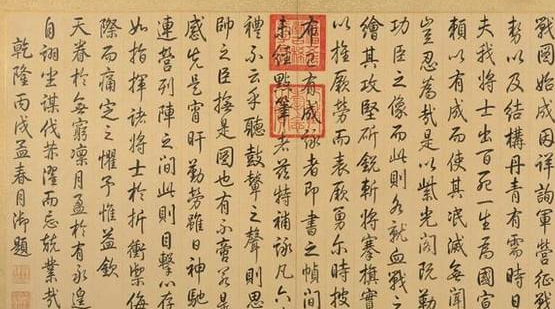 戰圖始成因詳詢軍營征戰
勢以及結構丹青有需時日
夫我將士出百死一生為國宣
賴以有成而使其泯滅無聞
豈忍為哉是以紫光閣既勒
功臣之像而此則各就血戰之
繪其攻堅斫銳斬將搴旗實
以旌厥勞而表厥勇爾時披
布已有成詠者即書之幀間
未經點筆者茲特補詠凡六
禮不云乎聽鼓鼙之聲則思
帥之臣撫是圖也有不啻若是
感先是宵旰勤勞雖日神馳
連營列陣之間此則目擊以存
如指揮諸將士於折衝禦侮
際而痛定之懼予惟益欽
天眷於無窮凜月盈於有永遑
自詡坐謀伐赫濯而忘兢業哉
乾隆丙戌孟春月御題